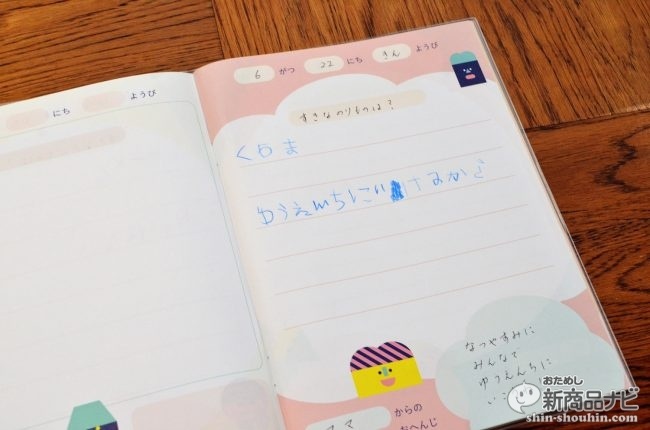 にち ようび
6 がつ 22 にち きん ようび
すきなのりものは?
くるま
ゆうえんちにい
なつやすみに
みんなで
ゆうえんちに
いこ
ママ からの
おへんじ
おためし
新商品ナビ
shin-shouhin.com